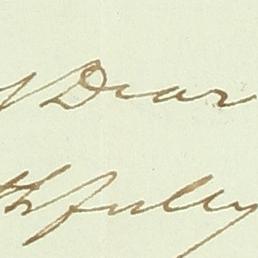 Dear
thfully